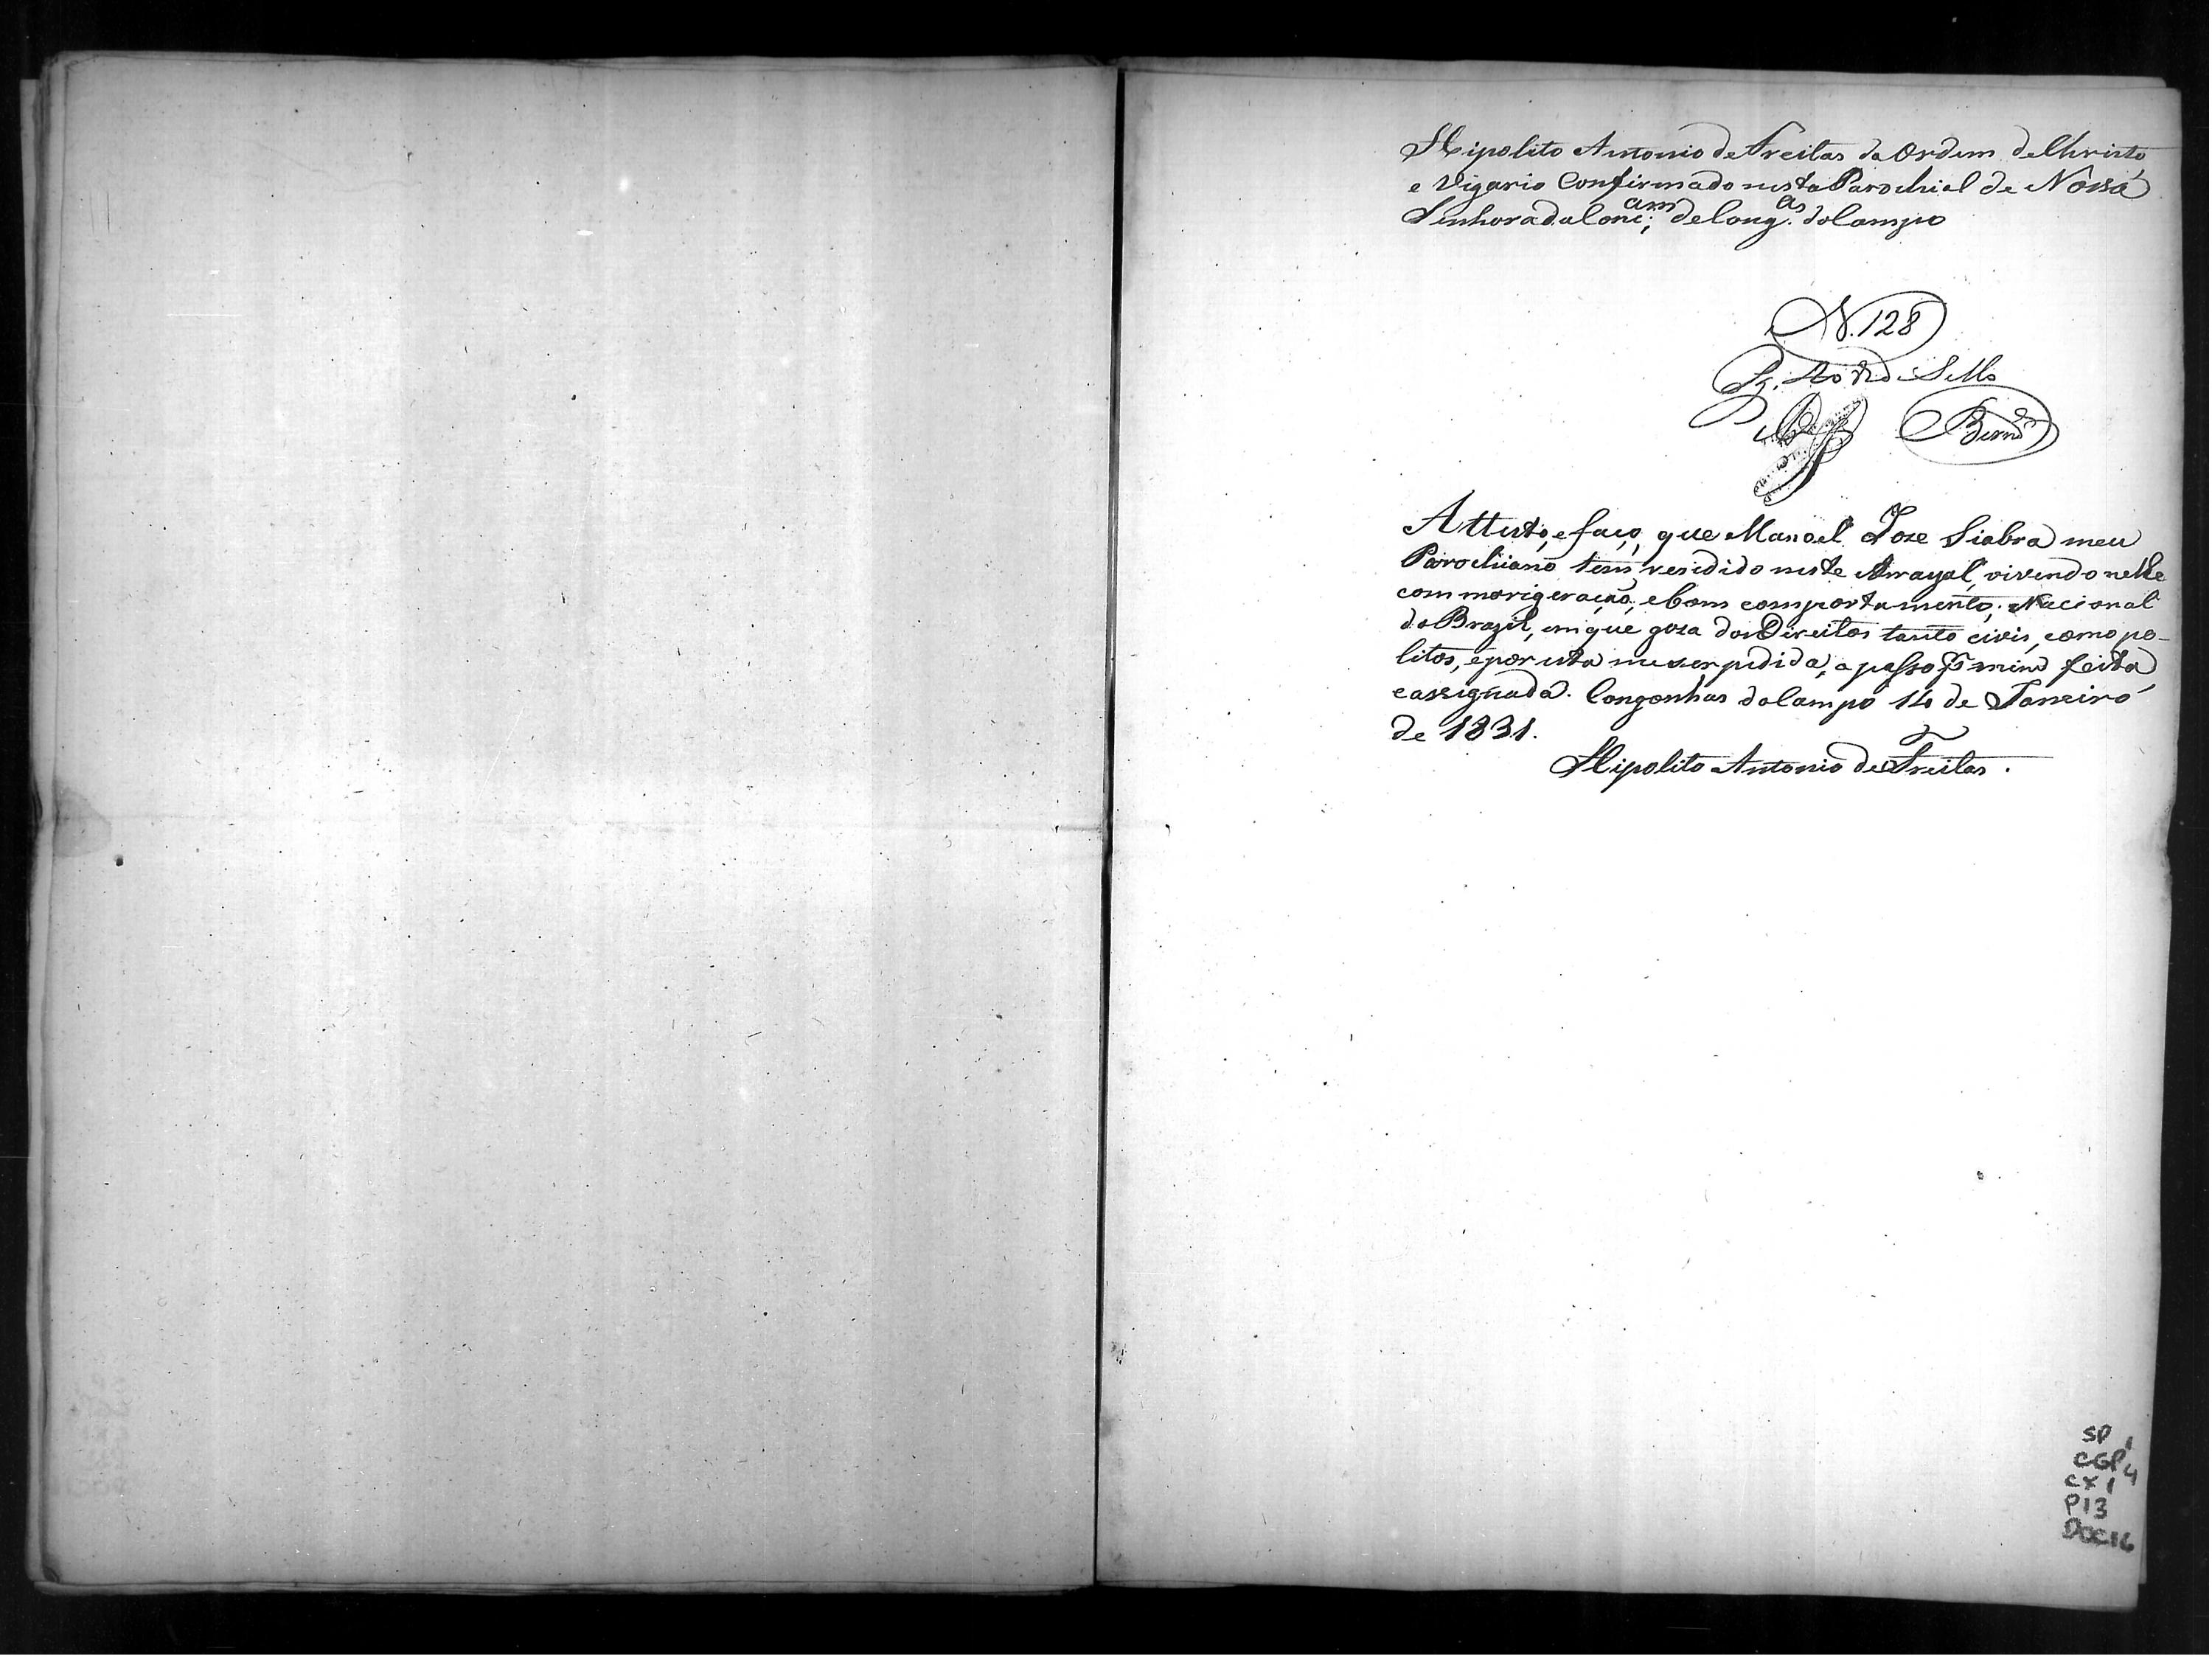 Hipolito Antonio de Freitas da Ordem de Christo,
e Vigario Confirmado nesta Parochial de Nossa
Senhora da Conc.am de Cong.as do Campo
N. 128
Pg. 40 rs de Sello
Bern.des
Attesto, e faço, que Manoel Joze Siabra meu
Parochiano tem residido neste Arrayal, vivendo nelle
com morigeração, e bom comportamento; Nacional
do Brazil, em que goza dos Direitos tanto civis, como po-
litos, e por esta me ser pedida, a passo p mim feita,
e assignada. Congonhas do Campo 14 de Janeiro
de 1831.
Hipolito Antonio de Freitas.
SP 1
CGP 4
CX 1
P13
DOC16